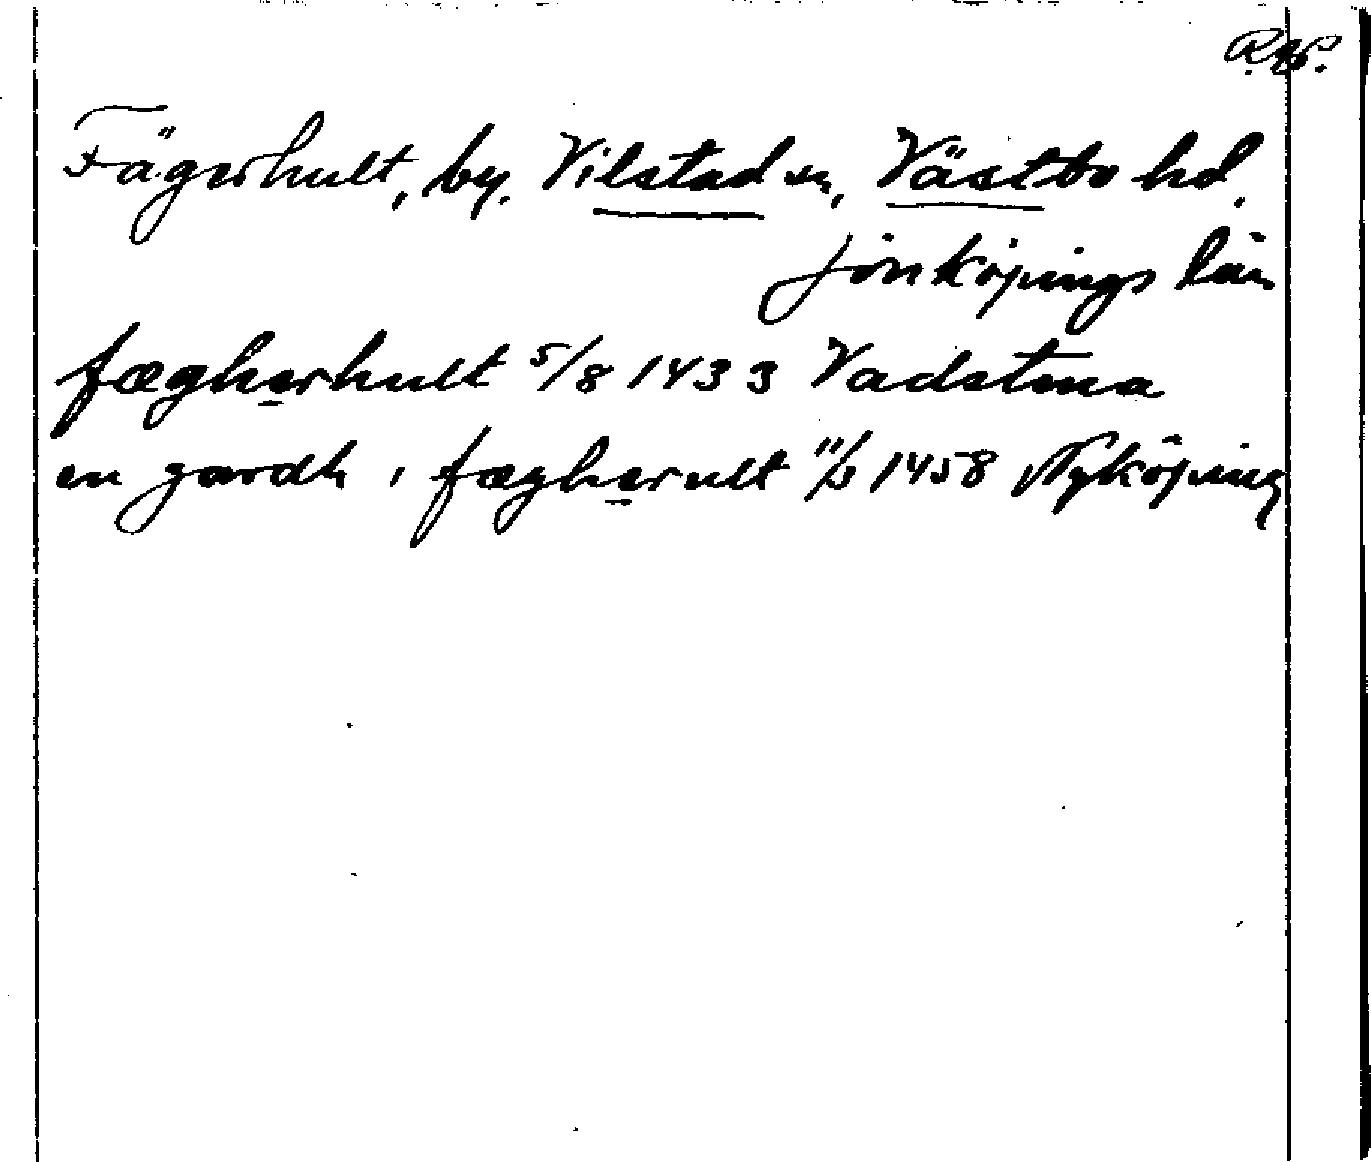 R.AP.
Fägerhult, by. Vilstad sn, Västbo hd.
Jönköpings län
fægherhult 5/8 1433 Vadstena
en gardh i fægherult 11/3 1458 Nyköping